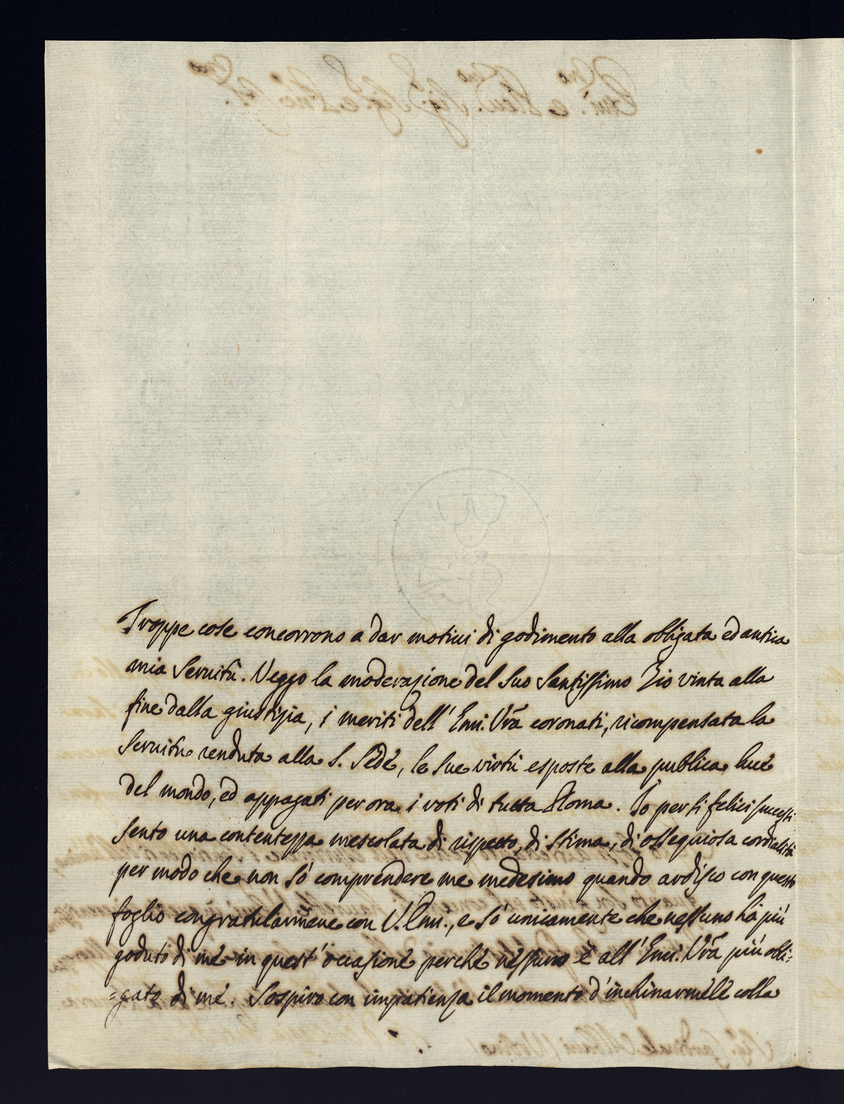 Troppe cose concorrono a dar motivi di godimento alla obligata ed antica
mia Servitù. Veggo la moderazione del Suo Santissimo Zio vinta alla
fine dalla giustizia, i meriti dell' Emi. Vrã coronati, ricompensata la
Servitù renduta alla S. Sede, le Sue virtù esposte alla publica luce
del mondo, ed appagati per ora i voti di tutta Roma. Io per sì felici successi
sento una contentezza mescolata di rispetto, di stima, di ossequiosa cordialità
per modo che non sò comprendere me medesimo quando ardisco con questo
foglio congratularmene con V. Emi., e sò unicamente che nessuno hà più
goduto di mè in quest' ocasione perchè nessuno è all' Emi. Vrã più obli-
=gato di me. Sospiro con impatienza il momento d' inchinarmele colla